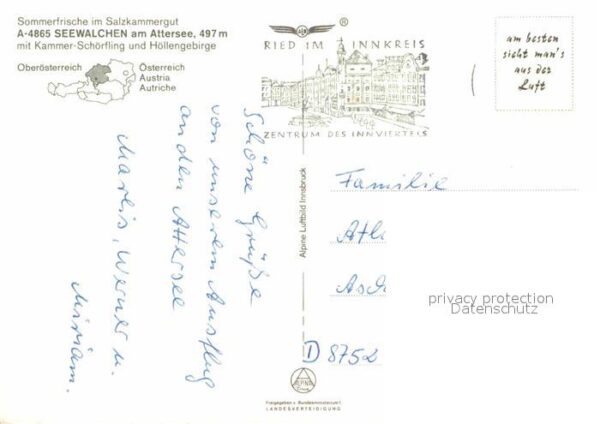 Sommerfrische im Salzkammergut
A-4865 SEEWALCHEN am Attersee, 497 m
mit Kammer-Schörfling und Höllengebirge
Oberösterreich
Österreich
Austria
Autriche
®
RIED IM INNKREIS
ZENTRUM DES INNVIERTELS
am besten
sieht man's
aus der
Luft
Schöne Grüße
von unserem Ausflug
an den Attersee
Marlis, Werner u.
Miriam.
Alpine Luftbild Innsbruck
Familie
D 8752
privacy protection
Datenschutz
ALPINE
Freigegeben v. Bundesministerium f.
LANDESVERTEIDIGUNG